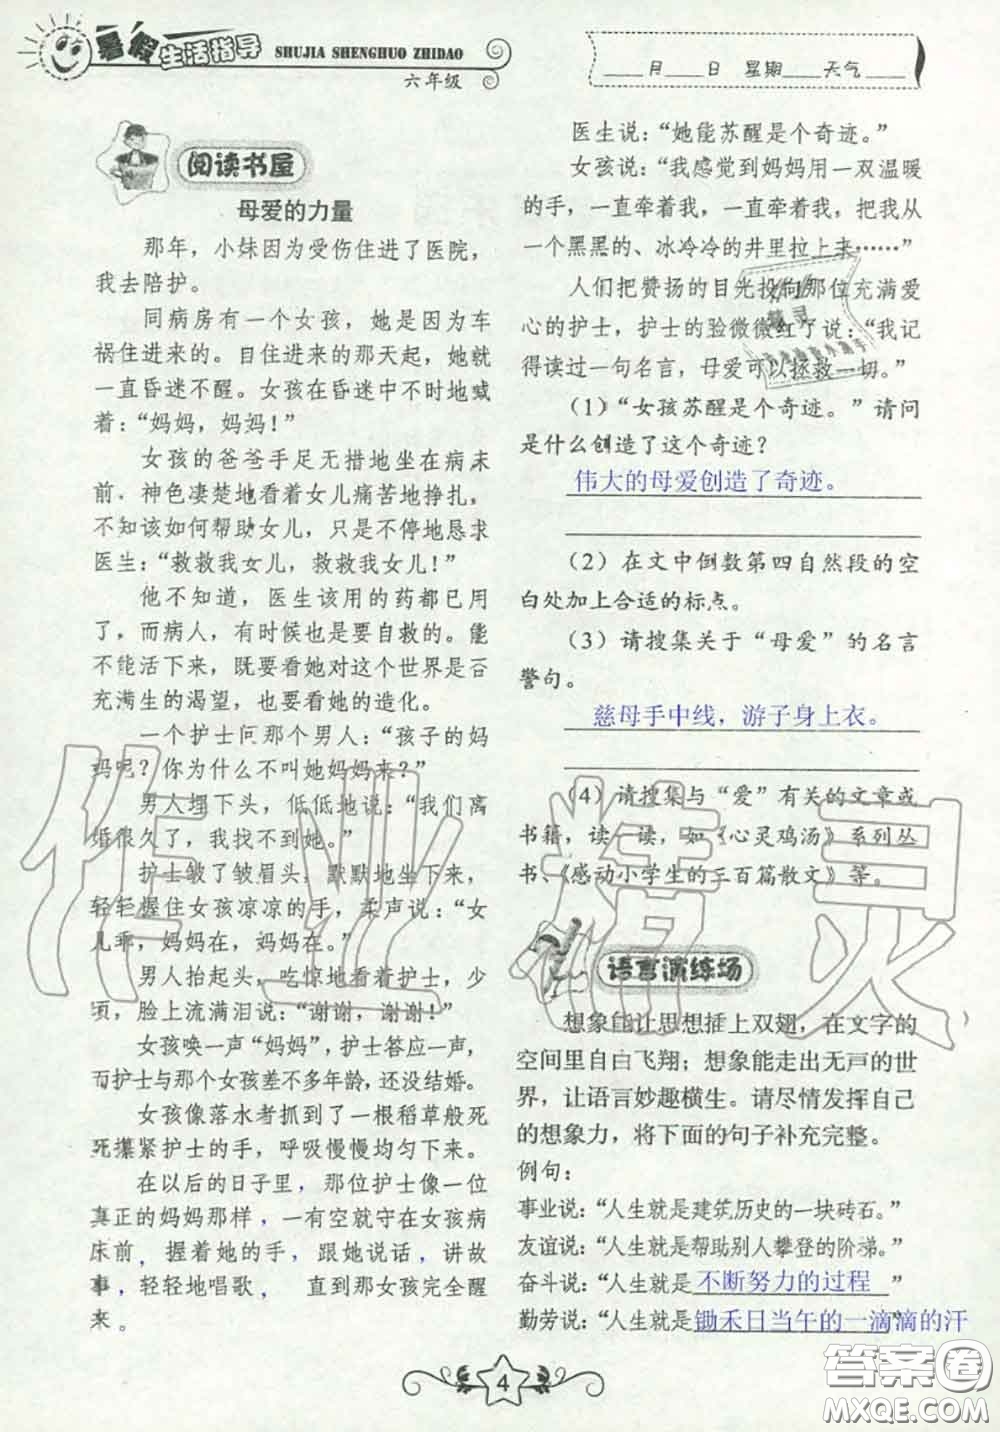 暑假生活指导
SHUJIA SHENGHUO ZHIDAO
六年级
____月____日 星期____天气____
阅读书屋
母爱的力量
那年，小妹因为受伤住进了医院，
我去陪护。
同病房有一个女孩，她是因为车
祸住进来的。自住进来的那天起，她就
一直昏迷不醒。女孩在昏迷中不时地喊
着：“妈妈，妈妈！”
女孩的爸爸手足无措地坐在病床
前，神色凄楚地看着女儿痛苦地挣扎，
不知该如何帮助女儿，只是不停地恳求
医生：“救救我女儿，救救我女儿！”
他不知道，医生该用的药都已用
了，而病人，有时候也是要自救的。能
不能活下来，既要看她对这个世界是否
充满生的渴望，也要看她的造化。
一个护士问那个男人：“孩子的妈
妈呢？你为什么不叫她妈妈来？”
男人埋下头，低低地说：“我们离
婚很久了，我找不到她。”
护士皱了皱眉头，默默地坐下来，
轻轻握住女孩凉凉的手，柔声说：“女
儿乖，妈妈在，妈妈在。”
男人抬起头，吃惊地看着护士，少
顷，脸上流满泪说：“谢谢，谢谢！”
女孩唤一声“妈妈”，护士答应一声，
而护士与那个女孩差不多年龄，还没结婚。
女孩像落水者抓到了一根稻草般死
死攥紧护士的手，呼吸慢慢均匀下来。
在以后的日子里，那位护士像一位
真正的妈妈那样，一有空就守在女孩病
床前，握着她的手，跟她说话，讲故
事，轻轻地唱歌，直到那女孩完全醒
来。
医生说：“她能苏醒是个奇迹。”
女孩说：“我感觉到妈妈用一双温暖
的手，一直牵着我，一直牵着我，把我从
一个黑黑的、冰冷冷的井里拉上来……”
人们把赞扬的目光投向那位充满爱
心的护士，护士的脸微微红了说：“我记
得读过一句名言，母爱可以拯救一切。”
（1）“女孩苏醒是个奇迹。”请问
是什么创造了这个奇迹？
伟大的母爱创造了奇迹。
（2）在文中倒数第四自然段的空
白处加上合适的标点。
（3）请搜集关于“母爱”的名言
警句。
慈母手中线，游子身上衣。
（4）请搜集与“爱”有关的文章或
书籍，读一读，如《心灵鸡汤》系列丛
书、《感动小学生的三百篇散文》等。
语言演练场
想象能让思想插上双翅，在文字的
空间里自由飞翔；想象能走出无声的世
界，让语言妙趣横生。请尽情发挥自己
的想象力，将下面的句子补充完整。
例句：
事业说：“人生就是建筑历史的一块砖石。”
友谊说：“人生就是帮助别人攀登的阶梯。”
奋斗说：“人生就是不断努力的过程”
勤劳说：“人生就是锄禾日当午的一滴滴的汗
4
作业精灵
答案圈
MXQE.COM